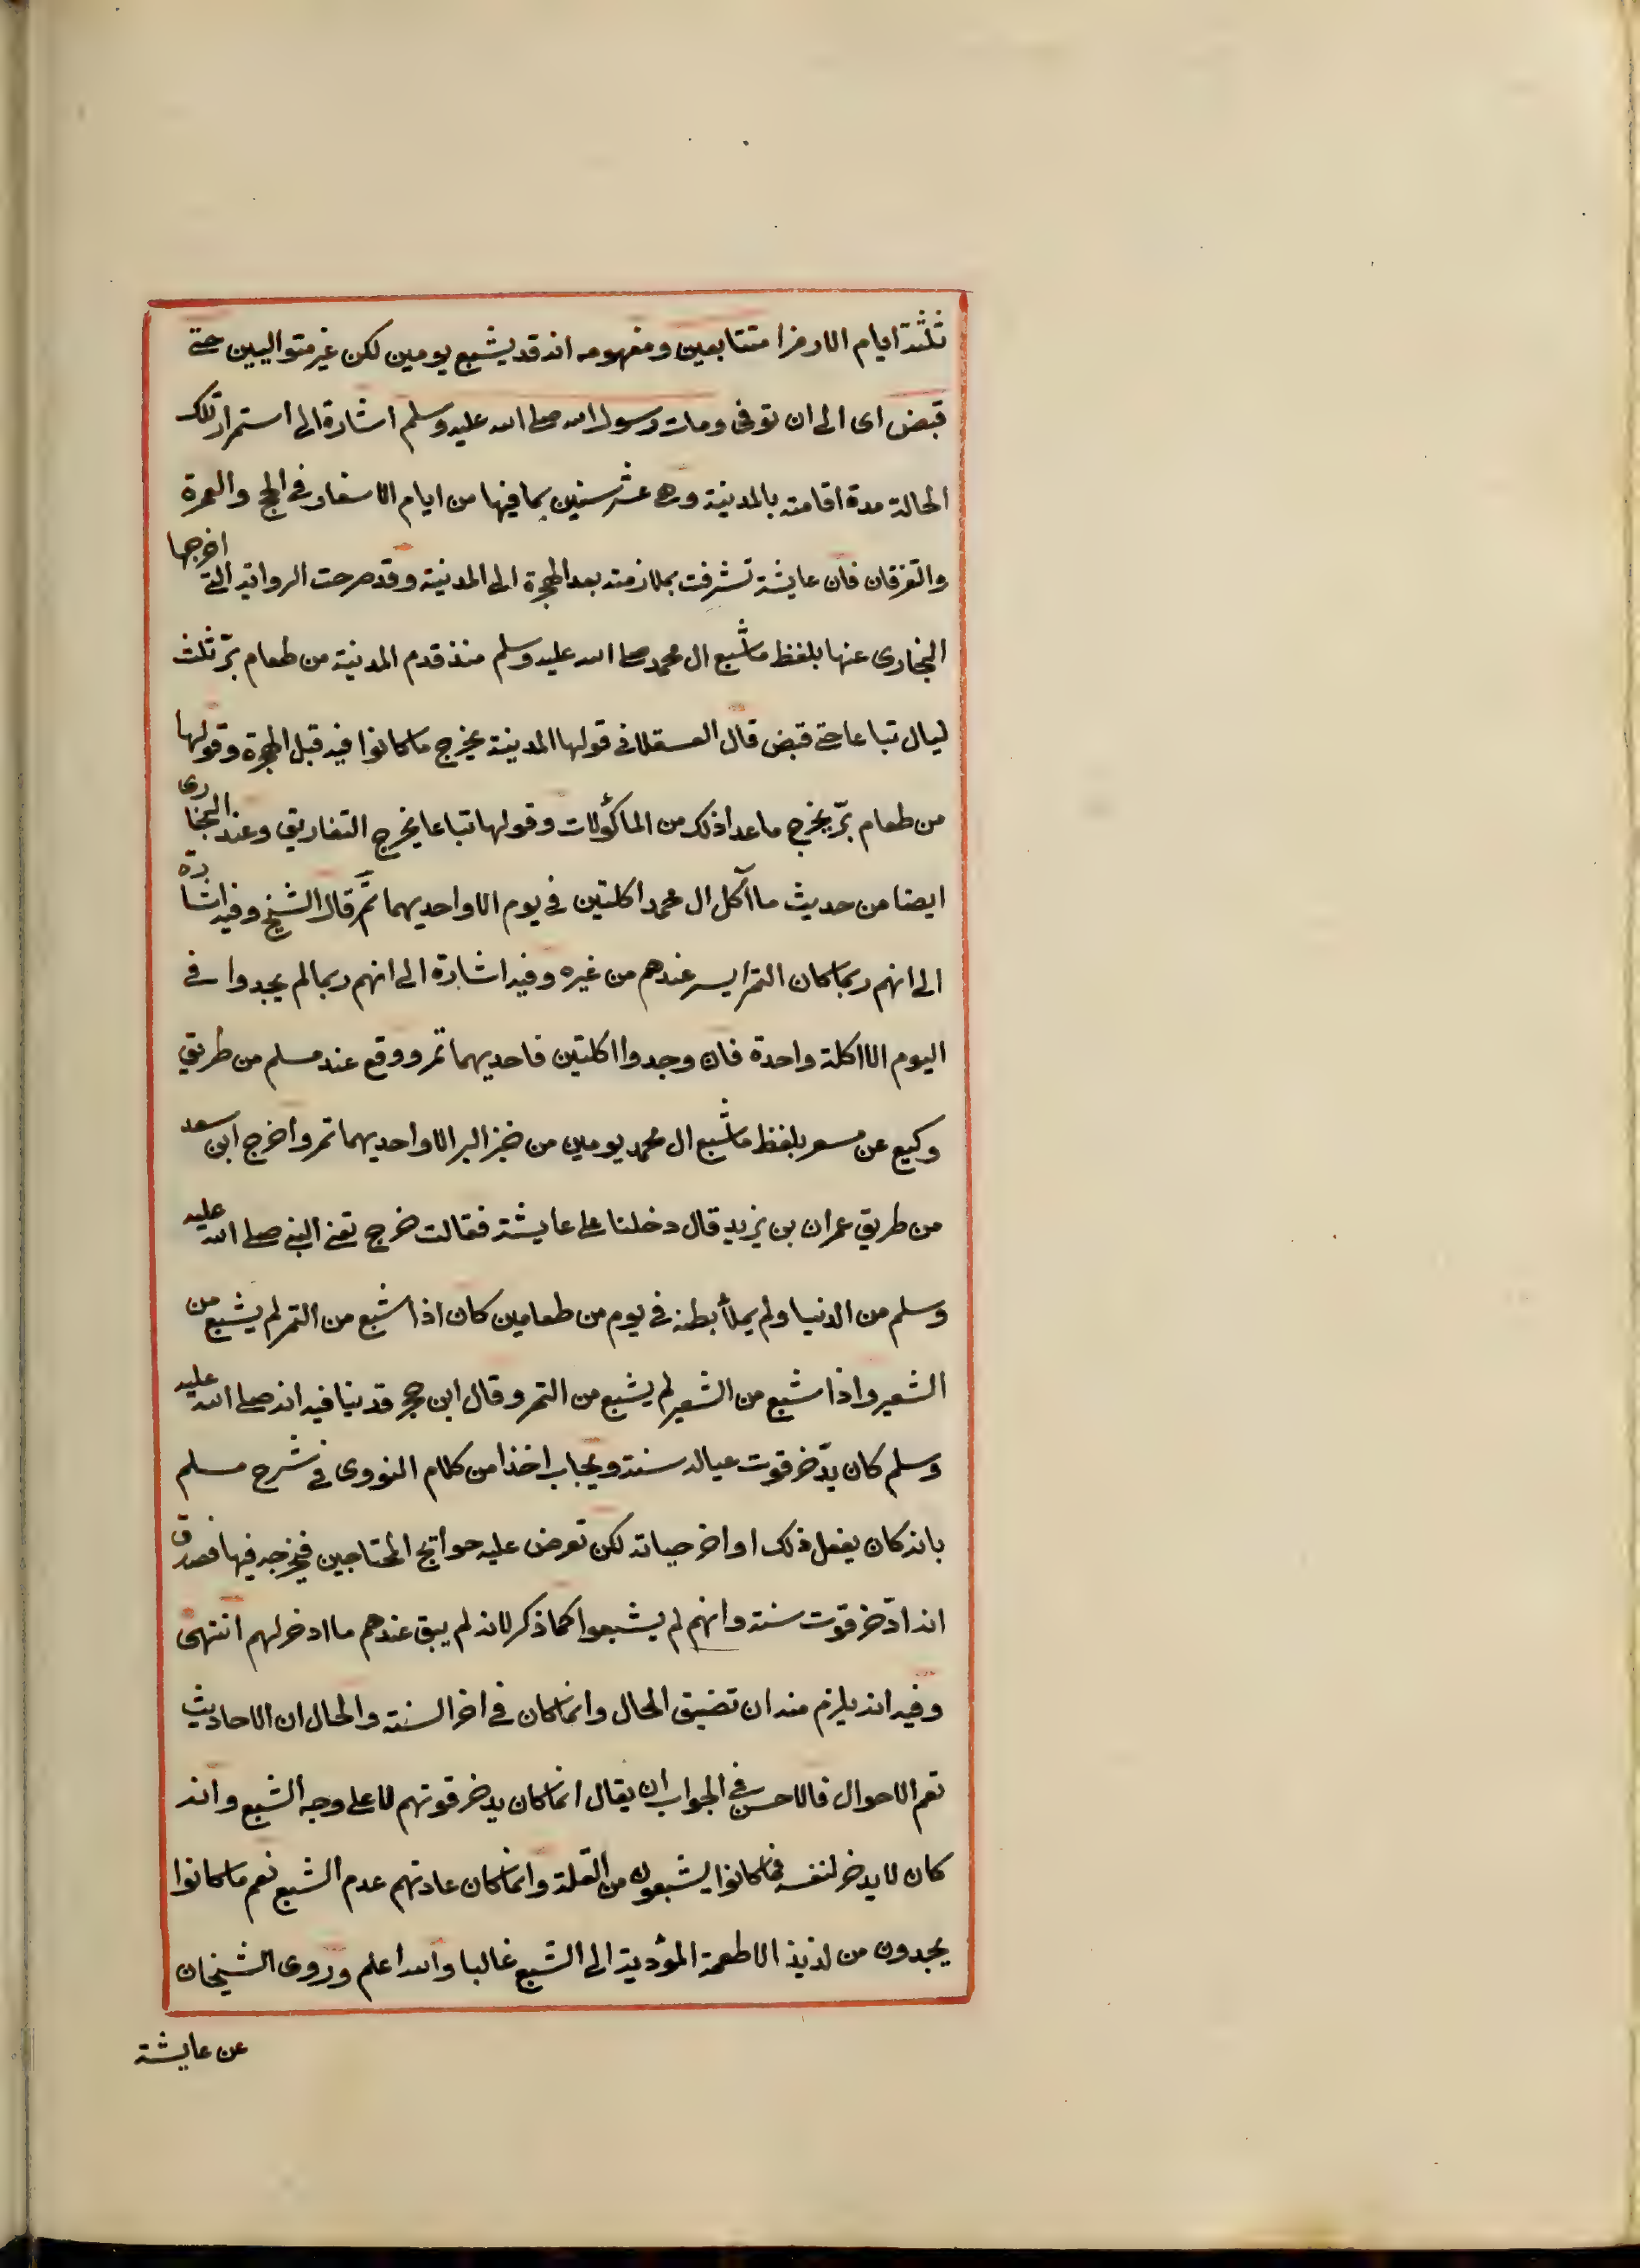 ثلثة ايام الا رمزا متتابعين ومفهومه انه قد يشبع يومين لكن غير متواليين حتى
قبض اى الى ان توفى ومات رسول الله صلى الله عليه وسلم اشارة الى استمرار تلك
الحالة مدة اقامته بالمدينة وهى عشر سنين بما فيها من ايام الاسفار فى الحج والعمرة
والتغزفان فان عايشة تشرفت بملازمته بعد الهجرة الى المدينة وقد صرحت الرواية التى اخرجها
البخارى عنها بلفظ ما شبع ال محمد صلى الله عليه وسلم منذ قدم المدينة من طعام برّ ثلث
ليال تباعا حتى قبض قال العسقلانى قولها المدينة يخرج ما كانوا فيه قبل الهجرة وقولها
من طعام برّ يخرج ما عدا ذلك من المأكولات وقولها تباعا يخرج التفاريق وعند البخارى
ايضا من حديث ما اكل ال محمد اكلتين فى يوم الا واحديهما تمر قال الشيخ وفيه اشارة
الى انهم ربما كان التمر ايسر عندهم من غيره وفيه اشارة الى انهم ربما لم يجدوا فى
اليوم الا اكلة واحدة فان وجدوا اكلتين فاحديهما تمر ووقع عند مسلم من طريق
وكيع عن مسعر بلفظ ما شبع ال محمد يومين من خبز البر الا واحديهما تمر واخرج ابن سعد
من طريق عمران بن يزيد قال دخلنا على عايشة فقالت خرج تعنى النبى صلى الله عليه
وسلم من الدنيا ولم يملأ بطنه فى يوم من طعامين كان اذا شبع من التمر لم يشبع من
الشعير واذا شبع من الشعير لم يشبع من التمر وقال ابن حجر قد ينافيه انه صلى الله عليه
وسلم كان يدّخر قوت عياله سنة ويجاب اخذا من كلام النووى فى شرح مسلم
بانه كان يفعل ذلك اواخر حياته لكن تعرض عليه حوائج المحتاجين فيخرجه فيها فصدق
انه ادّخر قوت سنة وانهم لم يشبعوا كما ذكر لانه لم يبق عندهم ما ادخر لهم انتهى
وفيه انه يلزم منه ان تضيق الحال وانما كان فى اخر السنة والحال ان الاحاديث
تعم الاحوال فالاحسن فى الجواب ان يقال انما كان يدخر قوتهم لا على وجه الشبع وانه
كان لا يدخر لنفسه فما كانوا يشبعون من القلة وانما كان عادتهم عدم الشبع نعم ما كانوا
يجدون من لذيذ الاطعمة المؤدية الى الشبع غالبا والله اعلم وروى الشيخان
عن عايشة